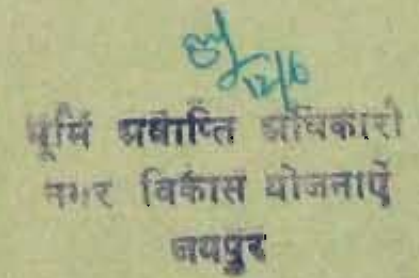 भूमि अवाप्ति अधिकारी
नगर विकास योजनाऐं
जयपुर